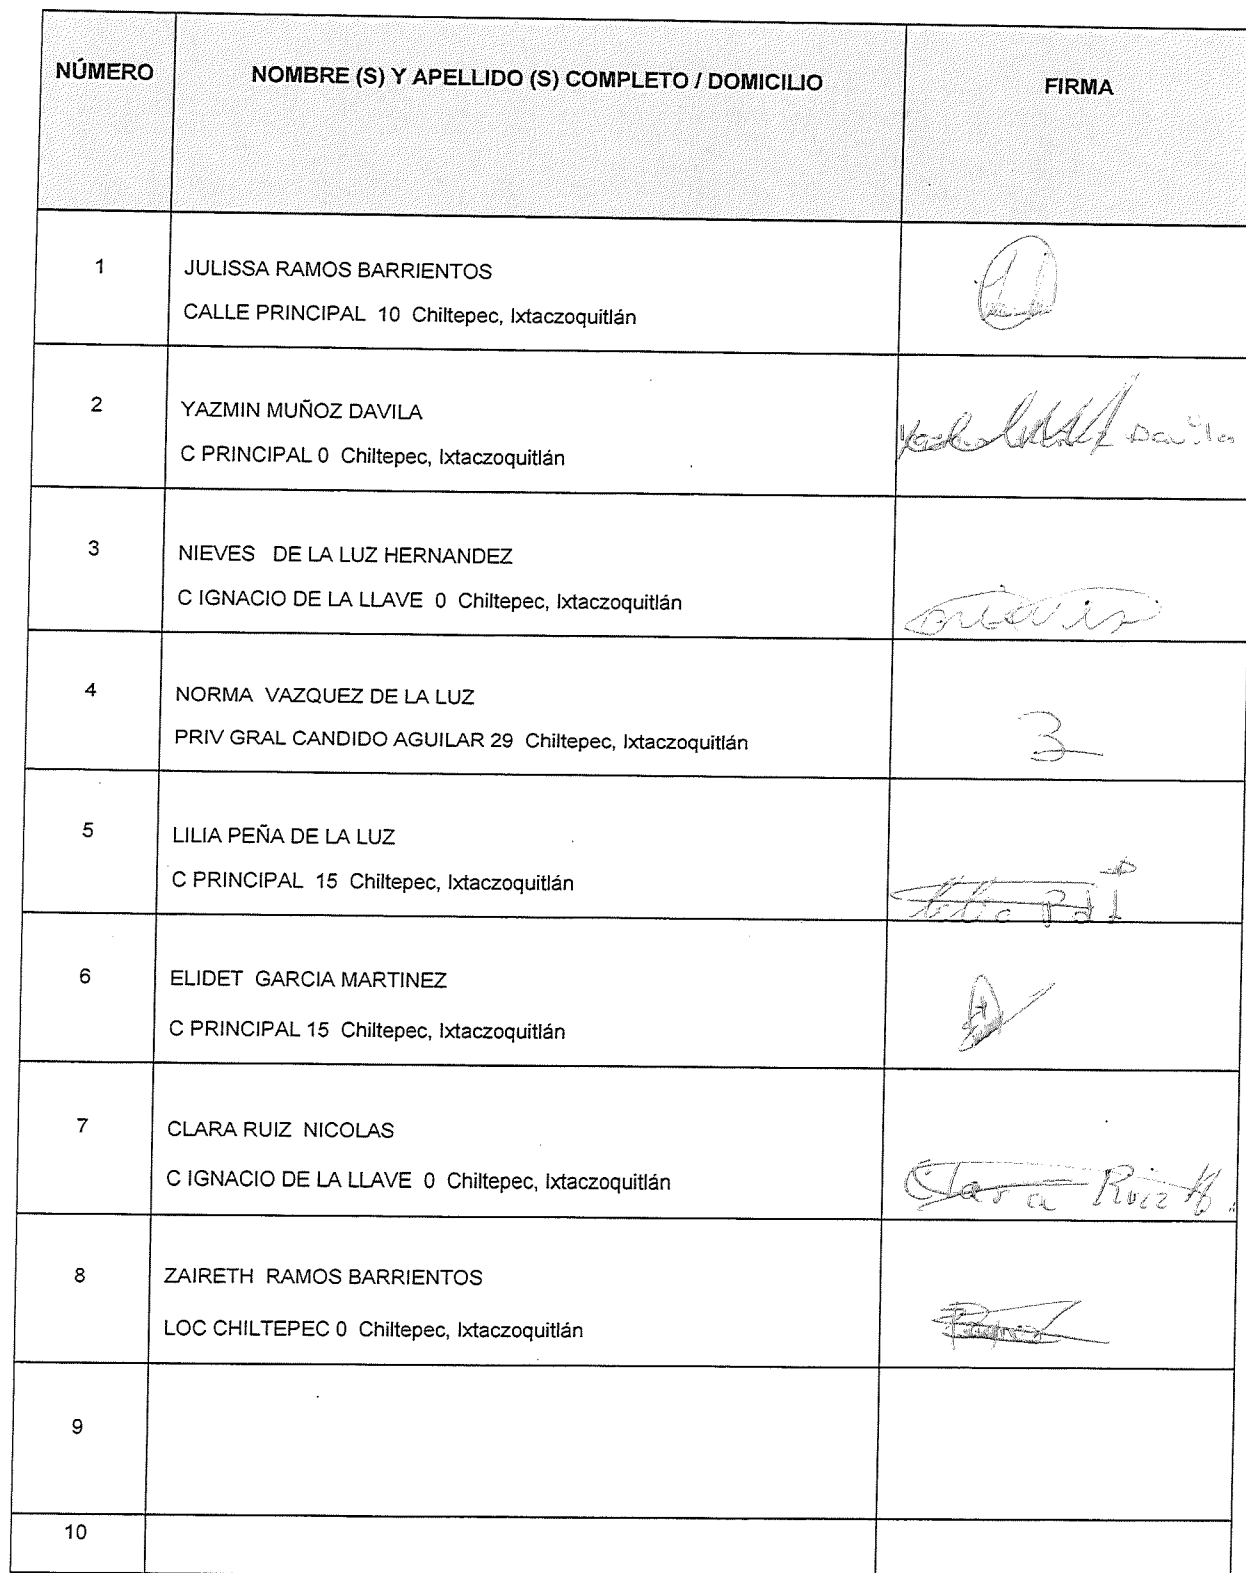 NÚMERO
NOMBRE (S) Y APELLIDO (S) COMPLETO / DOMICILIO
FIRMA
1
JULISSA RAMOS BARRIENTOS
CALLE PRINCIPAL 10 Chiltepec, Ixtaczoquitlán
2
YAZMIN MUÑOZ DAVILA
C PRINCIPAL 0 Chiltepec, Ixtaczoquitlán
Davila
3
NIEVES DE LA LUZ HERNANDEZ
C IGNACIO DE LA LLAVE 0 Chiltepec, Ixtaczoquitlán
nieves
4
NORMA VAZQUEZ DE LA LUZ
PRIV GRAL CANDIDO AGUILAR 29 Chiltepec, Ixtaczoquitlán
5
LILIA PEÑA DE LA LUZ
C PRINCIPAL 15 Chiltepec, Ixtaczoquitlán
6
ELIDET GARCIA MARTINEZ
C PRINCIPAL 15 Chiltepec, Ixtaczoquitlán
7
CLARA RUIZ NICOLAS
C IGNACIO DE LA LLAVE 0 Chiltepec, Ixtaczoquitlán
Clara Ruiz N.
8
ZAIRETH RAMOS BARRIENTOS
LOC CHILTEPEC 0 Chiltepec, Ixtaczoquitlán
9
10